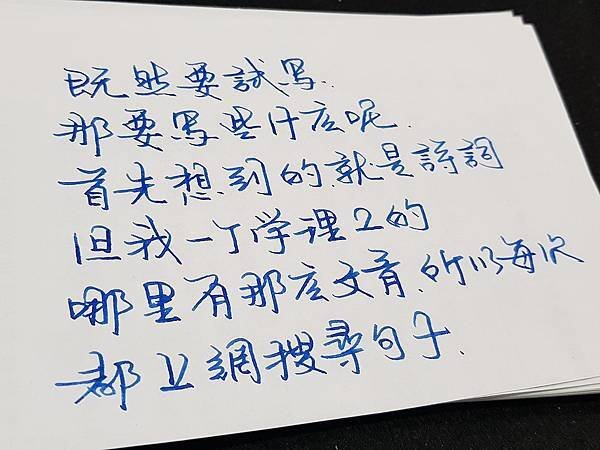 既然要試寫.
那要寫些什庅呢.
首先想到的.就是詩詞
但我一丁学理工的
哪里有那庅文青.所以每次
都上網搜尋句子.